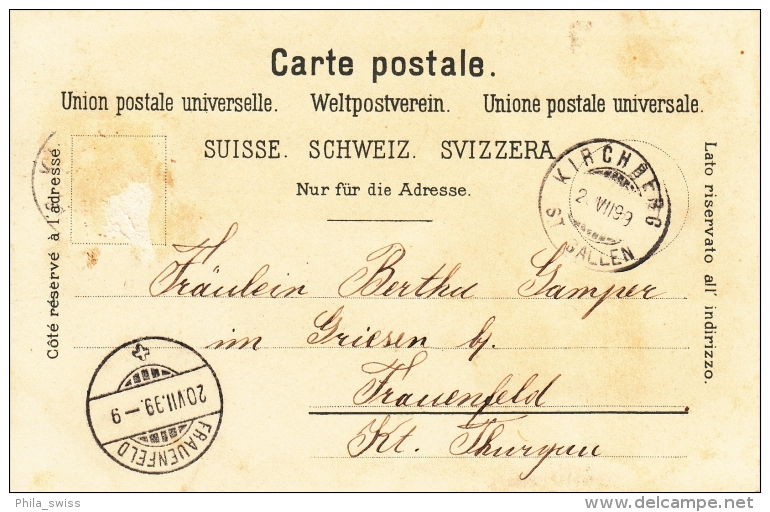 Carte postale.
Union postale universelle. Weltpostverein. Unione postale universale.
SUISSE. SCHWEIZ. SVIZZERA
Nur für die Adresse.
Côté réservé à l'adresse.
Lato riservato all' indirizzo.
KIRCHBERG
2. VII 99
ST. GALLEN
Fräulein Bertha Gamper
im Griesen b/.
Frauenfeld
Kt. Thurgau
20 VII. 99. – 9
FRAUENFELD
Phila_swiss
delcampe.net